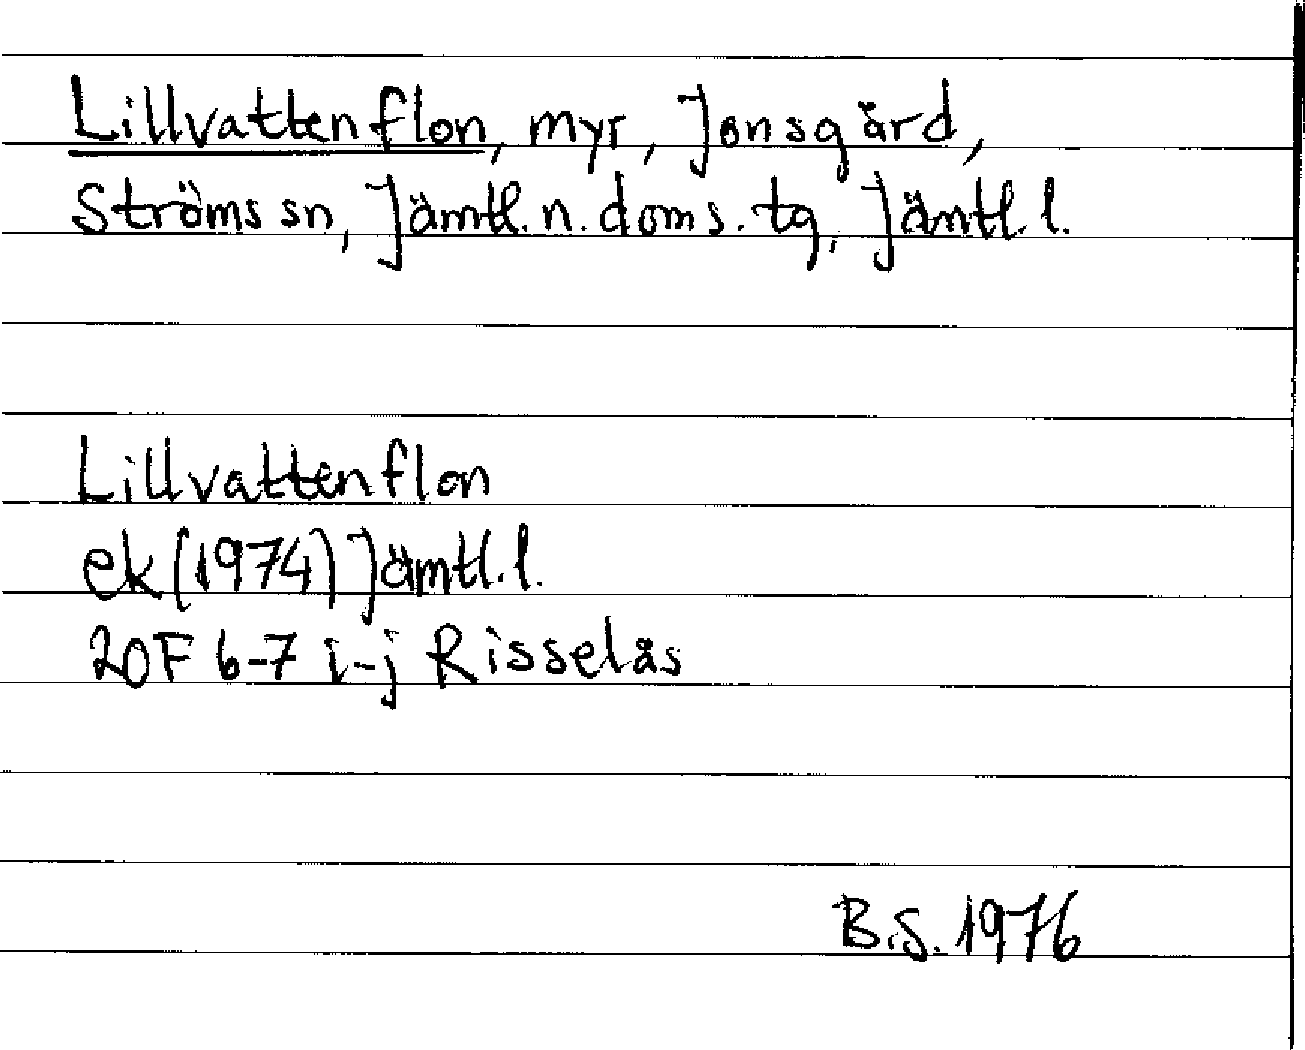 Lillvattenflon, myr, Jonsgård,
Ströms sn, Jämtl. n. doms. tg, Jämtl. l.
Lillvattenflon
ek (1974) Jämtl. l.
20F 6-7 i-j Risselås
B.S. 1976